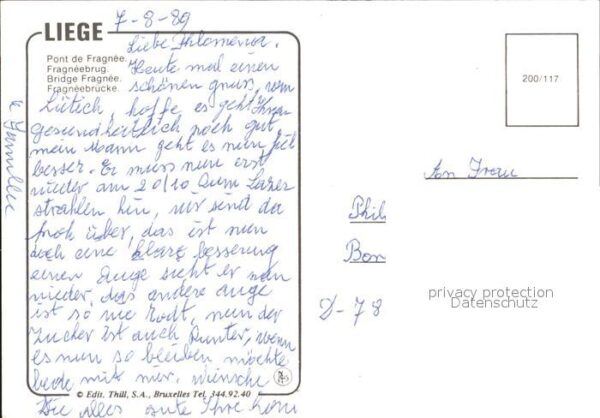 LIEGE
Pont de Fragnée.
Fragnéebrug.
Bridge Fragnée.
Fragnéebrücke.
7-8-89
Liebe
Heute mal einen
schönen gruss, vom
Lütich, hoffe es geht Ihnen
gesundheitlich noch gut,
mein Mann geht es nun fiel
besser. Er muss nun erst
wieder am 20/10 zum Lazer
strahlen hin, wir send da
froh über, das ist nun
doch eine klare besserung
einen Auge sieht er nun
wieder, das andere auge
ist so nie Rodt, nun der
Zucker ist auch Runter, wenn
es nun so bleiben möchte
bede mit mir, wünsche
Die alles gute Ihre
u Familie
© Edit. Thill, S.A., Bruxelles Tel. 344.92.40
200/117
An Frau
Phil
Bon
D-78
privacy protection
Datenschutz